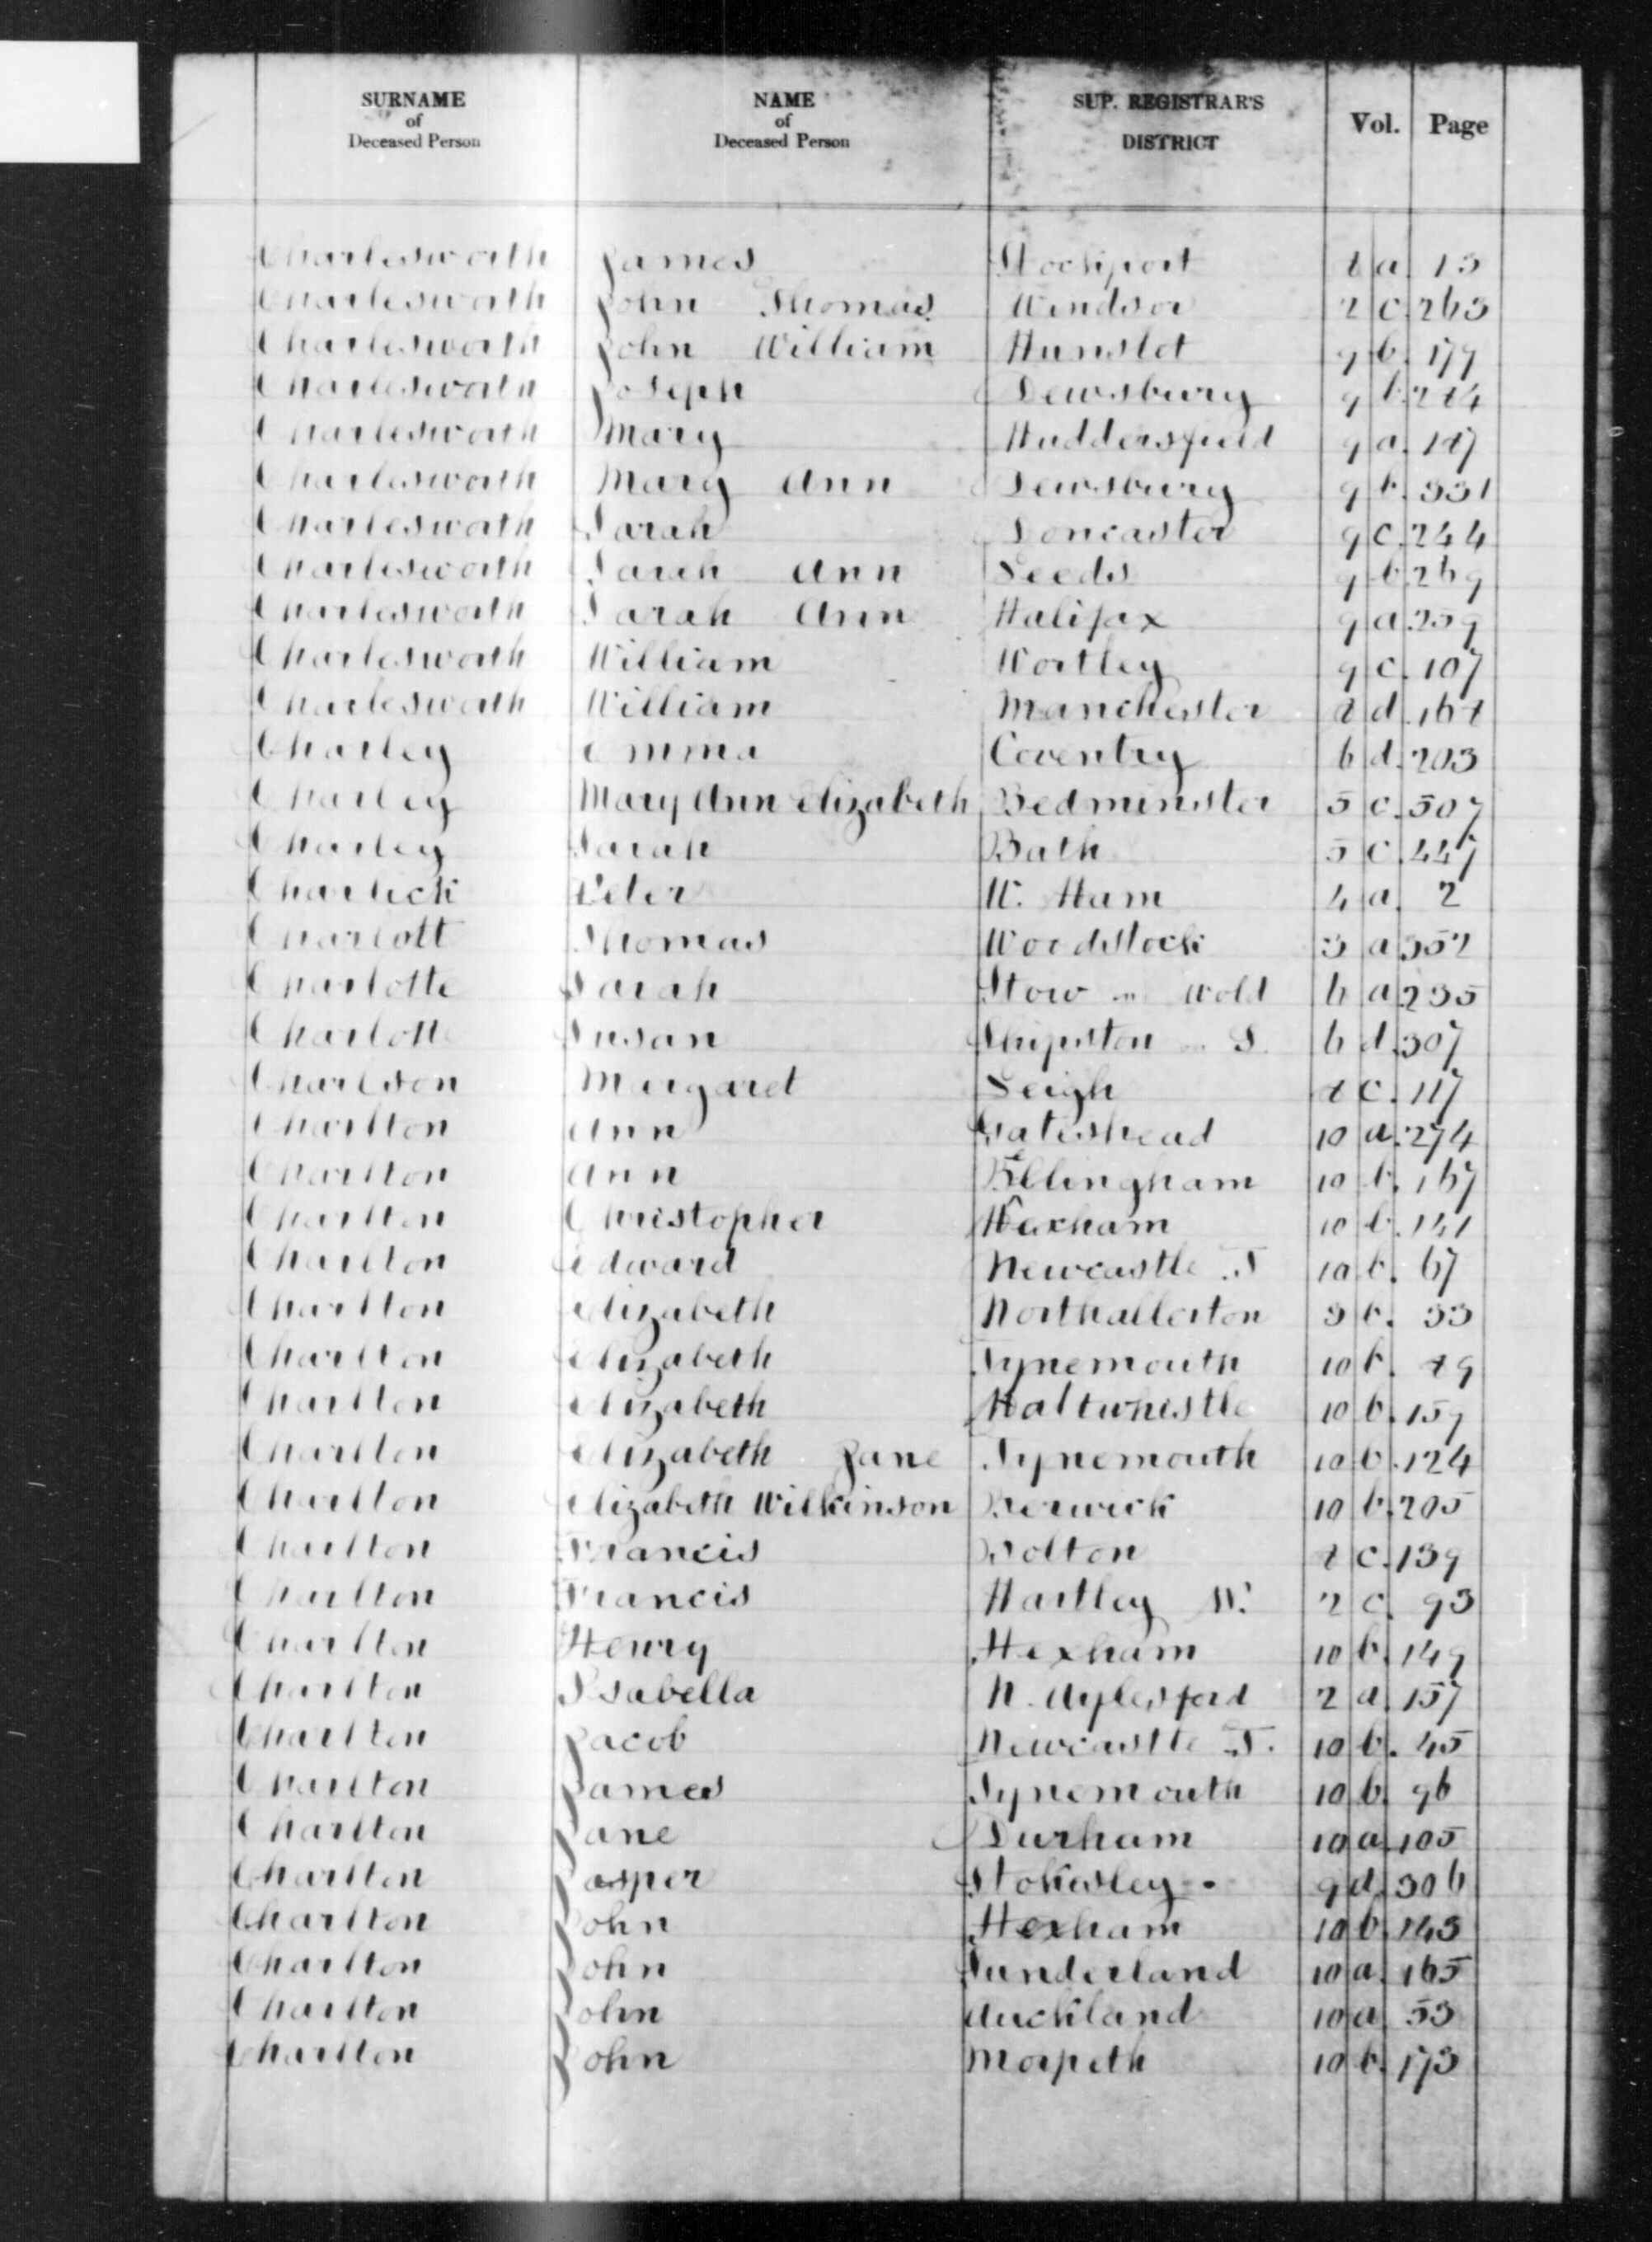 SURNAME of Deceased Person NAME of Deceased Person SUP. REGISTRAR'S DISTRICT Vol. Page
Charlesworth James Stockport 8 a. 13
Charlesworth John Thomas Windsor 2 c. 263
Charlesworth John William Hunslet 9 b. 179
Charlesworth Joseph Dewsbury 9 b. 284
Charlesworth Mary Huddersfield 9 a. 187
Charlesworth Mary Ann Dewsbury 9 b. 331
Charlesworth Sarah Doncaster 9 c. 244
Charlesworth Sarah Ann Leeds 9 b. 269
Charlesworth Sarah Ann Halifax 9 a. 259
Charlesworth William Wortley 9 c. 107
Charlesworth William Manchester 8 d. 168
Charley Emma Coventry 6 d. 203
Charley Mary Ann Elizabeth Bedminster 5 c. 507
Charley Sarah Bath 5 c. 447
Charlick Peter W. Ham 4 a. 2
Charlott Thomas Woodstock 3 a. 352
Charlotte Sarah Stow on Wold 6 a. 235
Charlotte Susan Shipston on S. 6 d. 307
Charlson Margaret Leigh 8 c. 117
Charlton Ann Gateshead 10 a. 274
Charlton Ann Bellingham 10 b. 167
Charlton Christopher Hexham 10 b. 141
Charlton Edward Newcastle T 10 b. 67
Charlton Elizabeth Northallerton 3 b. 33
Charlton Elizabeth Tynemouth 10 b. 89
Charlton Elizabeth Haltwhistle 10 b. 159
Charlton Elizabeth Jane Tynemouth 10 b. 124
Charlton Elizabeth Wilkinson Berwick 10 b. 205
Charlton Francis Bolton 8 c. 139
Charlton Francis Hartley W. 2 c. 93
Charlton Henry Hexham 10 b. 149
Charlton Isabella N. Aylesford 2 a. 157
Charlton Jacob Newcastle T. 10 b. 45
Charlton James Tynemouth 10 b. 96
Charlton Jane Durham 10 a. 105
Charlton Jasper Stokesley 9 d. 306
Charlton John Hexham 10 b. 143
Charlton John Sunderland 10 a. 165
Charlton John Auckland 10 a. 53
Charlton John Morpeth 10 b. 173